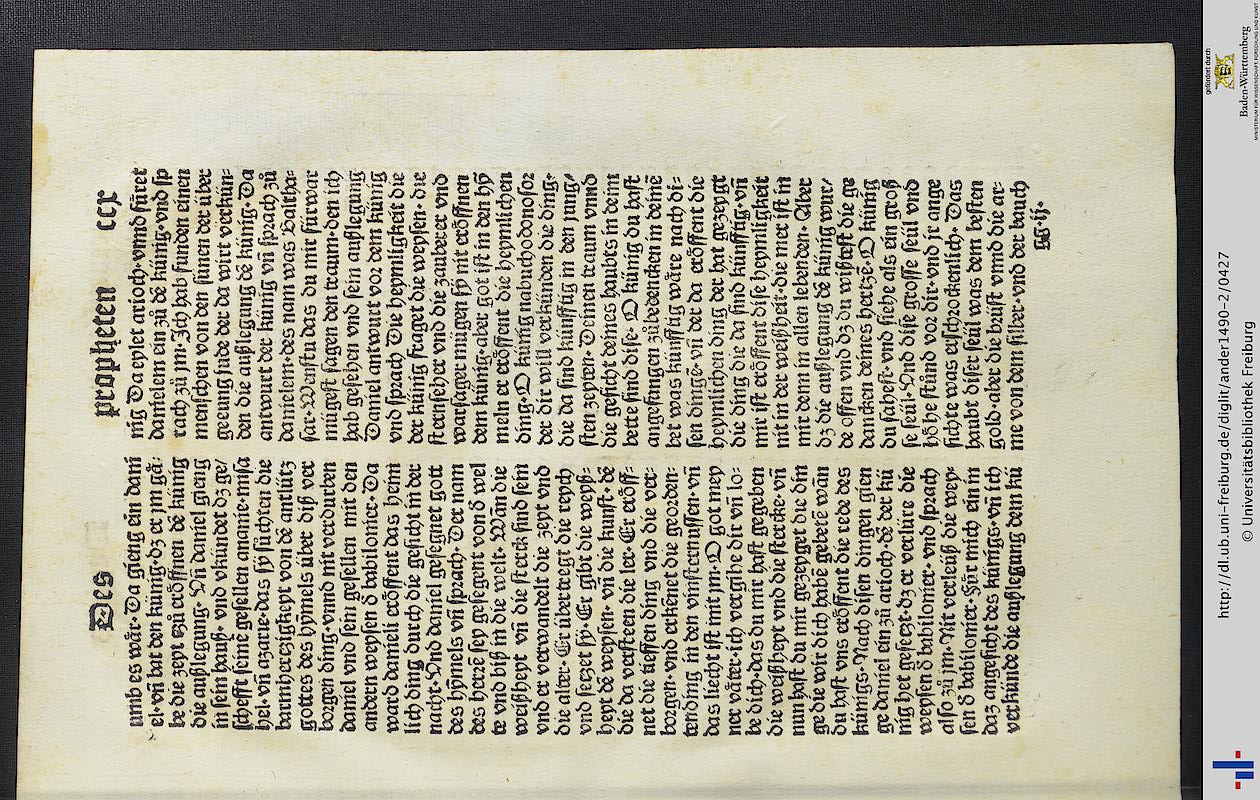 Des
propheten ccx
umb es wår· Da gieng ein dani
el· vñ bat den kunig· dz er jm gå⸗
be die zeyt ezů eröffnen dē künig
die außlegung· Vñ daniel gieng
in sein hauß· vnd vkündet dz ge/
schefft seinē gesellen ananie· misa
hel· vñ azarie· das sÿ sůchten die
barmhertzigkeyt von dē antlütz
gottes des hÿmels über diß ver
borgen ding· vnnd nit verdurben
daniel vnd sein gesellen mit den
andern weysen d babilonier· Da
ward danieli eröffent das heim
lich ding durch die gesicht in der
nacht· Vnd daniel gesegnet gott
des hÿmels vñ sprach· Der nam
des herrē sey gesegent von d wel
te vnd biß in die welt· Wañ die
weißheyt vñ die sterck sind sein
vnd er verwandelt die zeyt vnd
die alter· Er übertregt die reych
vnd seczet sÿ· Er gibt die weyß⸗
heyt dē weysen· vñ die kunst· dē
die da versteen die ler· Er eröff⸗
net die tieffen ding vnd die ver⸗
borgen· vnd erkēnt die geordn⸗
ten ding in den vinsternussen· vñ
das liecht ist mit jm· O got mey
ner våter· ich vergihe dir vñ lo⸗
be dich· das du mir hast gegeben
die weißheyt vnd die stercke· vñ
nun hast du mir gezeyget die din
ge die wir dich habē gebetē wan
du hast vns eröffent die rede des
künigs· Nach disen dingen gien
ge daniel ein zů arioch· dē der kü
nig het geseczt· dz er verlüre die
weysen d babilonier· vnd sprach
also zů jm· Nit verleüß die wey⸗
sen d babilonier· Für mich ein in
daz angesicht des künigs· vñ ich
verkünde die außlegung dem kü
nig Da eylet arioch· vnnd füret
danielem ein zů dē künig· vnd sp
rach zů jm· Ich hab funden einen
menschen von den sünen der über
geeung jude der da wirt verkün⸗
den die außlegung dē künig· Da
antwurt der künig vñ sprach zů
danielem· des nam was Baltha⸗
sar· Wenstu das du mir fürwar
mügest sagen den traum· den ich
hab gesehen vnd sein außlegung
Daniel antwurt vor dem künig
vnd sprach Die heymligkeit die
der künig fraget die weysen· die
sternseher vnd die zauberer vnd
warsager mügen sÿ nit eröffnen
dem künig· aber got ist in den hÿ
meln er eröffent die heymlichen
ding· O künig nabuchodonosor
der dir will verkünden die ding·
die da sind künfftig in den jung/
sten zeyten· Deinen traum vnnd
die gesicht deines haubts in deim
bette sind dise· O künig du hast
angefangen zů bedencken in deinē
bet was künfftig wåre nach di⸗
sen dingē· vñ der da eröffent die
heymlichen ding der hat gezeygt
die ding die da sind künfftig· vñ
mir ist eröffent dise heymligkeit
nit in der weißheit· die mer ist in
mir dem in allen lebenden· Aber
dz die außlegung dē künig wur/
de offen vnd dz du wißtest die ge
dancken deines hertzē· O künig
du sahest· vnd siehe als ein groß
se seül· Vnd dise grosse seül vnd
höhe stůnd vor dir· vnd jr ange
sichte was erschrockenlich· Das
haubt diser seül was dem besten
gold· aber die brüst vnnd die ar⸗
me von dem silber· vnd der bauch
ij·
gefördert durch
Baden-Württemberg
MINISTERIUM FÜR WISSENSCHAFT, FORSCHUNG UND KUNST
http://dl.ub.uni-freiburg.de/diglit/ander1490-2/0427
© Universitätsbibliothek Freiburg